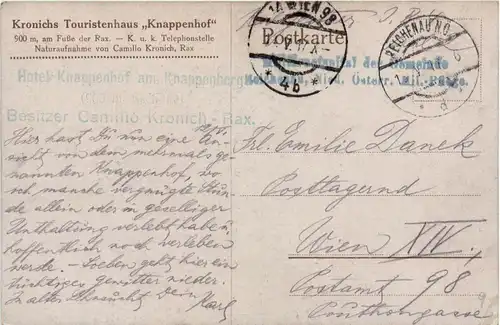 Kronichs Touristenhaus „Knappenhof"
900 m, am Fuße der Rax. — K. u. k. Telephonstelle
Naturaufnahme von Camillo Kronich, Rax
Hotel Knappenhof am Knappenberg
Besitzer Camillo Kronich - Rax.
Hier hast Du nun eine An-
sicht von dem mehrmals ge-
nannten Knappenhof, wo
ich manche vergnügte Stun-
de allein oder in geselliger
Unthaltung verlebt habe u.
hoffentlich noch verleben
werde. – Soeben geht hier ein
tüchtiges Gewitter nieder.
In alter Sehnsucht Dein
Karl
WIEN 98
4b
Postkarte
REICHENAU N.Ö.
d
der Gemeinde
Nied. Österr. Mil.-Pflege.
Frl. Emilie Danek
Posttagernd
Wien XIV,
Postamt 98